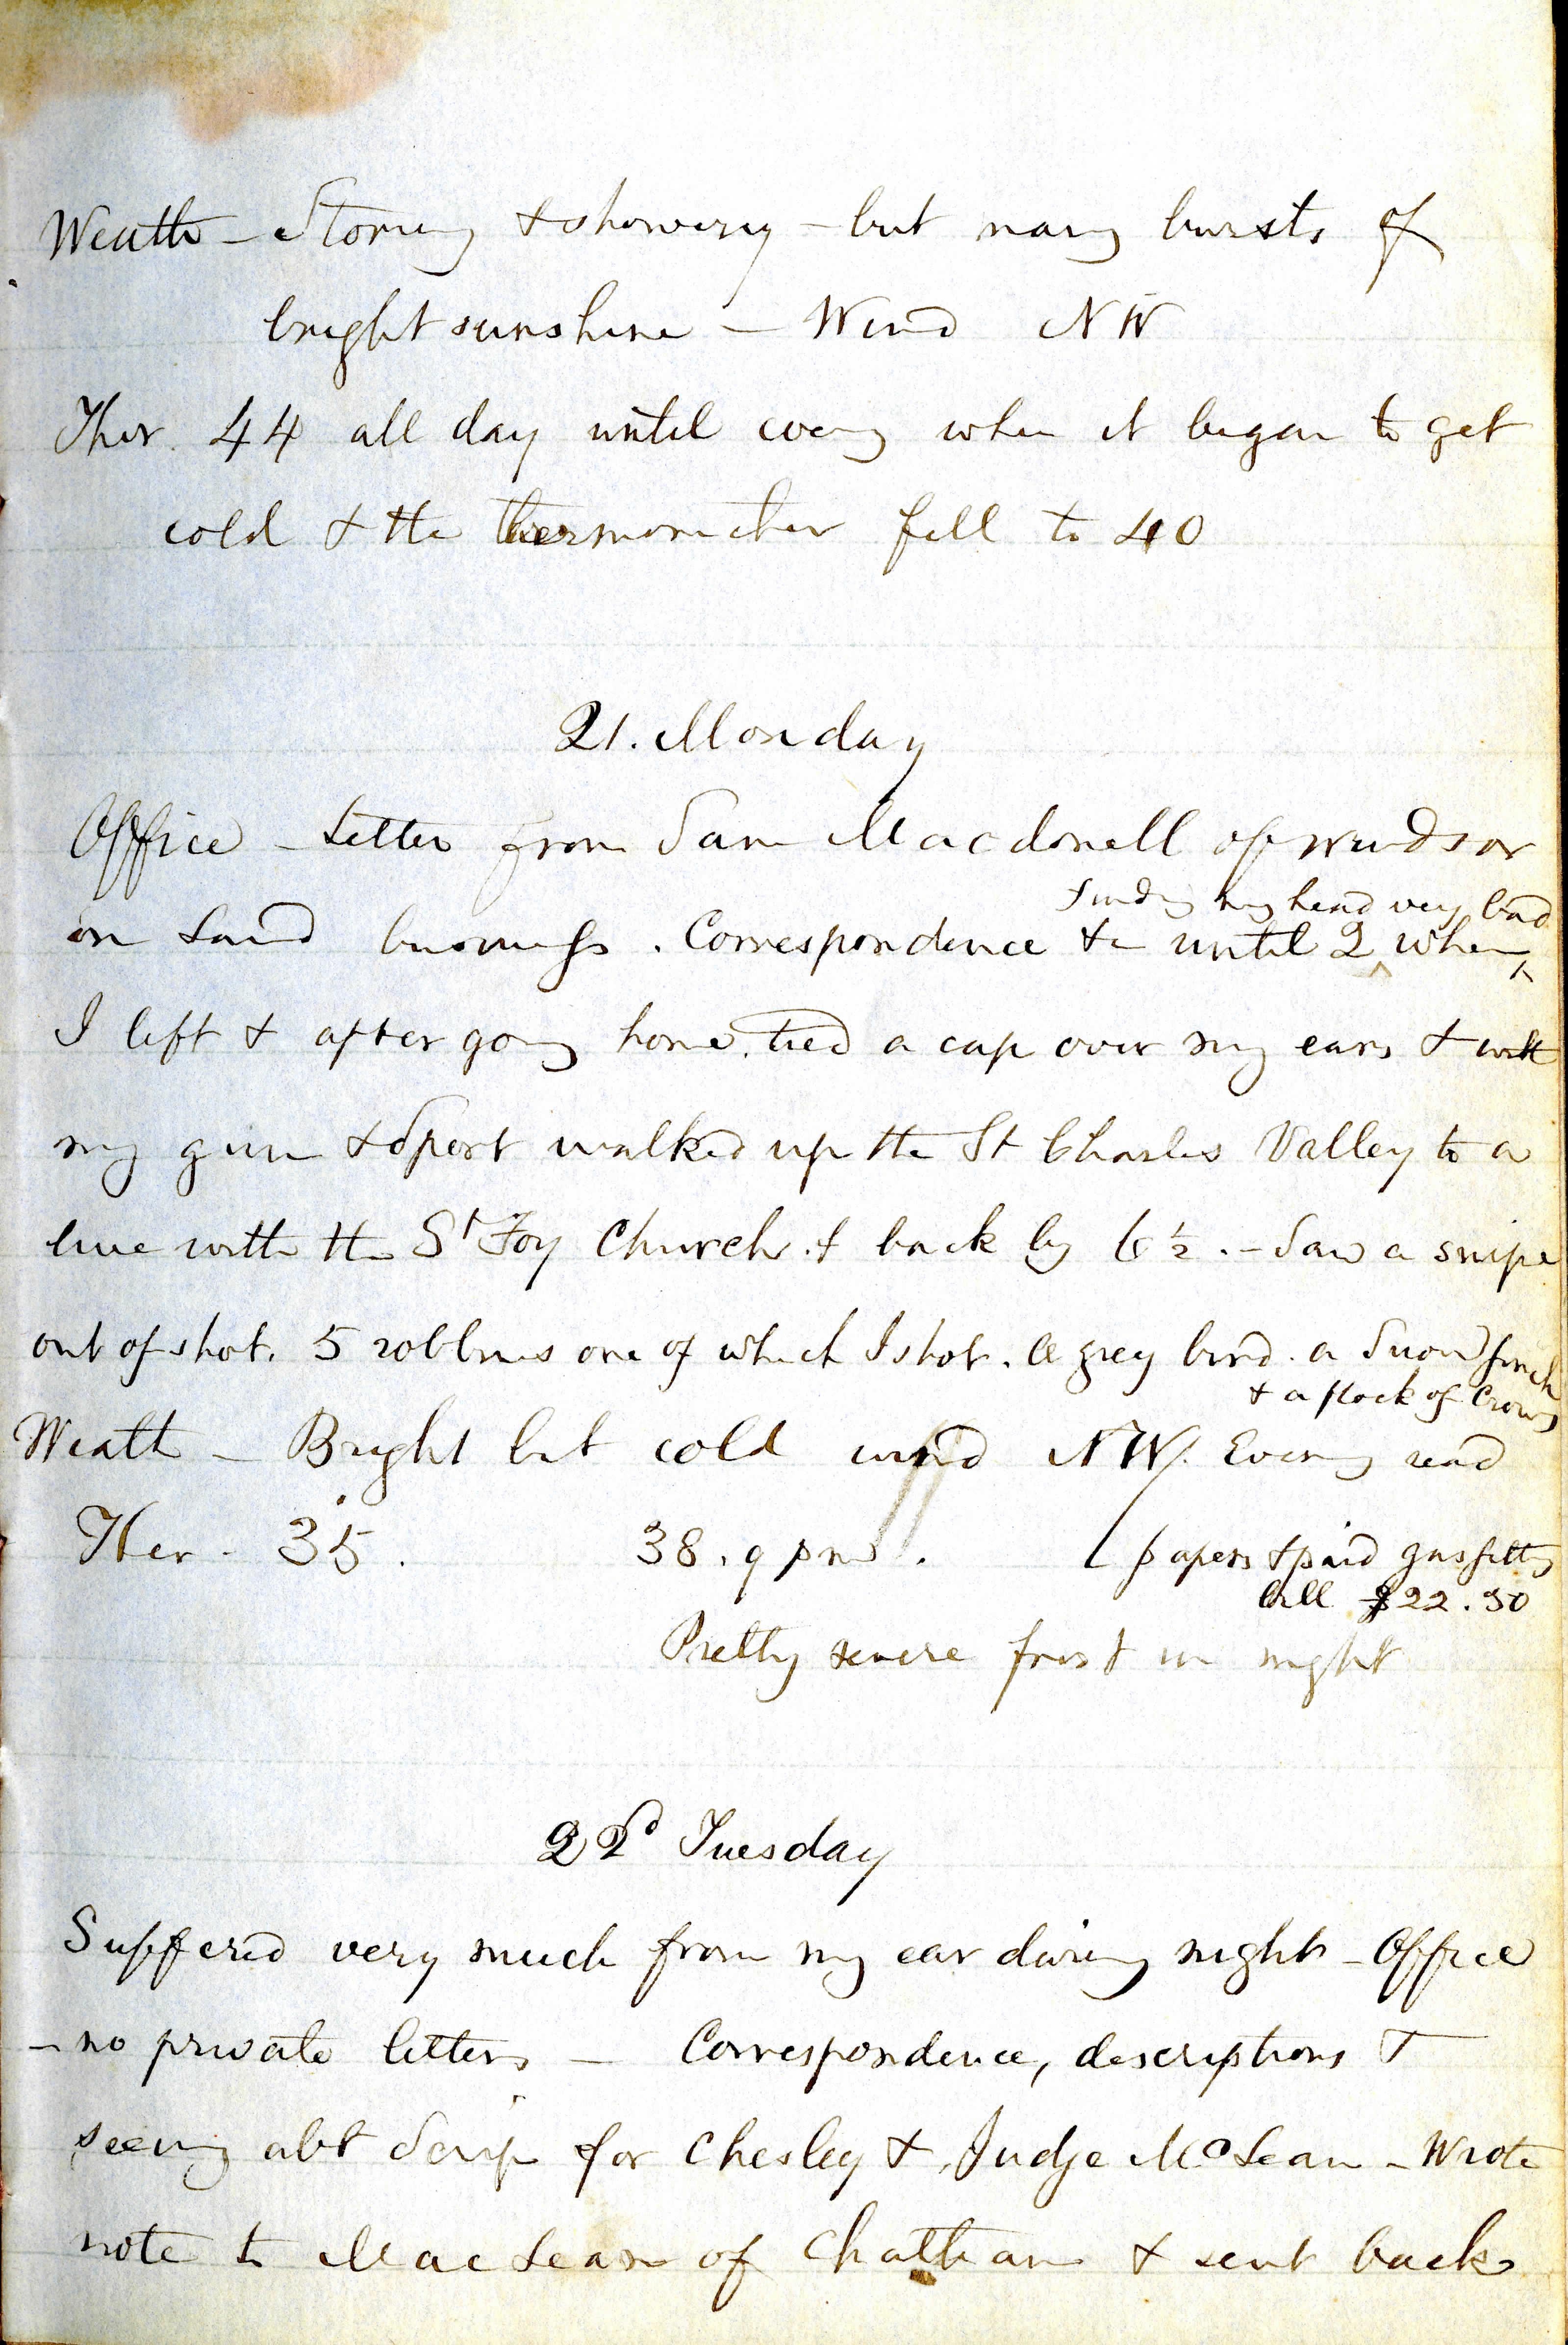 Weath - Stormy & showery - but many bursts of
bright sunshine - Wind NW
Ther. 44 all day until eveng when it began to get
cold & the thermometer fell to 40
21. Monday
Office - Letter from Sam Macdonell of Windsor
finding my head very bad
on Land business. Correspondence &c until 2 when
I left & after going home. tied a cap over my ears & with
my gun & Sport walked up the St Charles Valley to a
line with the St Foy Church. & back by 6½. - Saw a snipe
out of shot. 5 robbins one of which I shot. a grey bird. a Snow finch
& a flock of crows
Weath - Bright but cold wind NW. Eveng read
Ther - 35. 38. 9 pm. papers & paid gasfitting
bill $22.30
Pretty severe frost in night
22d Tuesday
Suffered very much from my ear during night - Office
- no private letters - Correspondence, descriptions &
seeing abt Scrip for Chesley & Judge McLean - Wrote
note to MacLean of Chatham & sent back